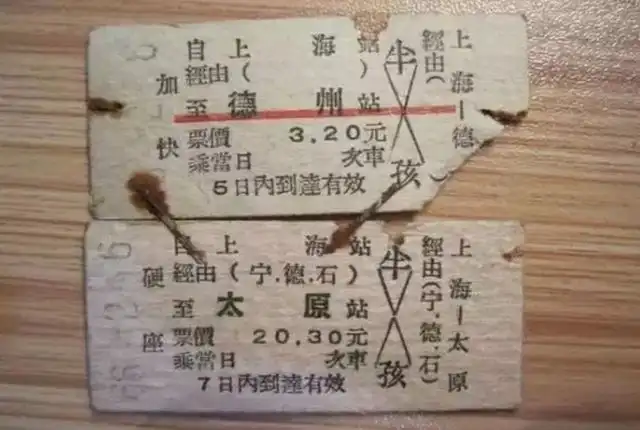 自上海站
經由( )
至德州站
票價 3.20元
乘當日 次車
5日內到達有效
加快
半孩
上海—德
經由( )
自上海站
經由(宁.德.石)
至太原站
票價 20.30元
乘當日 次車
7日內到達有效
硬座
半孩
上海—太原
經由(宁.德.石)